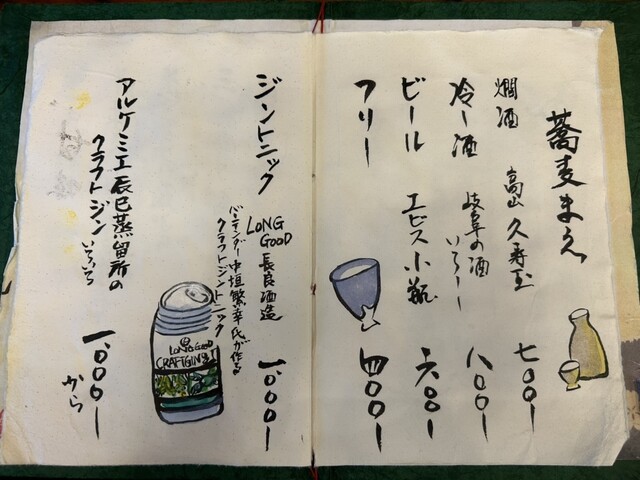 蕎麦まえ
燗酒 高山 久寿玉 七〇〇ー
冷し酒 岐阜の酒 いろいろ 八〇〇ー
ビール エビス小瓶 六〇〇ー
フリー 四〇〇ー
ジントニック LONG GOOD 長良酒造 一、〇〇〇ー
バーテンダー中垣繁幸氏が作る
クラフトジントニック
LONG GOOD
CRAFTGIN
アルケミエ辰巳蒸留所の
クラフトジン いろいろ 一、〇〇〇ー
から